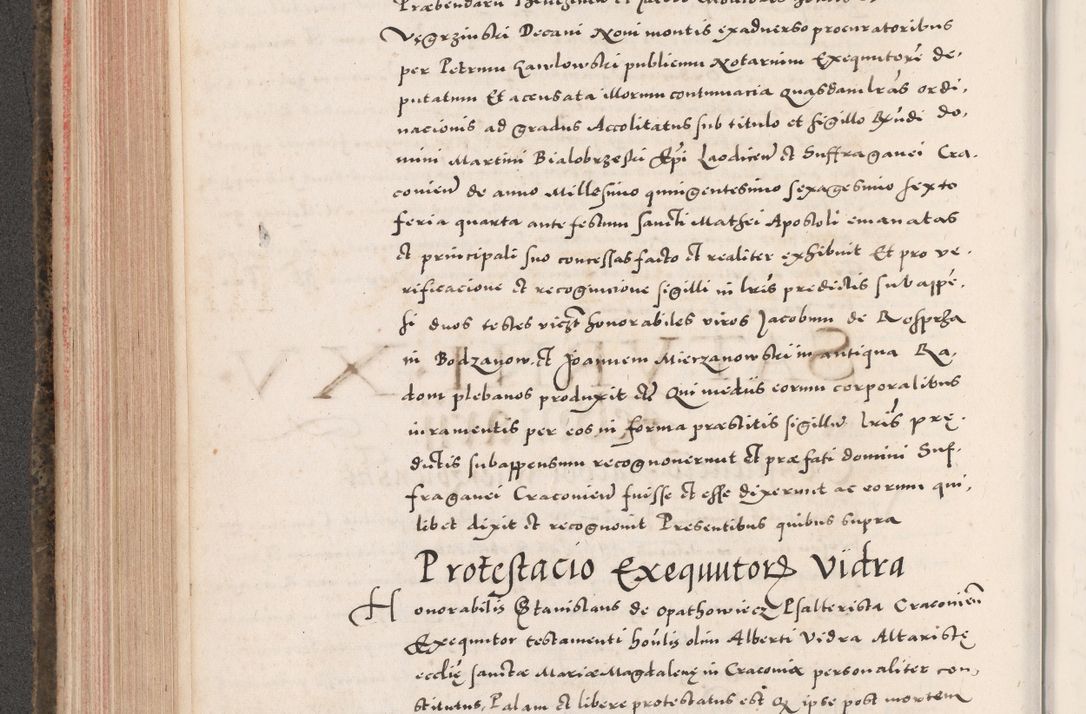 Vęgrzinski Decani Novi montis exadverso procuratoribus
per Petrum Hawlowski publicum Notarium Exequutorē de-
putatum Et accusata illorum contumacia quasdam lrās ordi-
nacionis ad gradus Accolitatus sub titulo et sigillo Rndi Do-
mini Martini Bialobrzeski Epi Laodiceń et Suffraganei Cra-
covień de anno Millesimo quingentesimo sexagesimo sexto
feria quarta ante festum Sancti Mathei Apostoli emanatas
et principali suo concessas facto et realiter exhibuit Et pro ve-
rificacione et recognicione sigilli in lris predictis subappē-
si duos testes vidzt honorabiles viros Jacobum de Rosprha
in Bodzanow et Joannem Mierzanowski in antiqua Ra-
dom plebanos produxit etc Qui mediis eorum corporalibus
iuramentis per eos in forma praestitis sigillū lris prę-
dictis subappensum recognoverunt et praefati domini Suf-
fraganei Cracovień fuisse et esse dixerunt ac eorum qui-
libet dixit et recognovit Presentibus quibus supra
Protestacio Exequutorę Vidra
Honorabilis Stanislaus de Opathowiecz Psalterista Cracovień
Exequutor testamenti honlis olim Alberti Vidra Altaristę
ecclię sanctae Mariae Magdalenę in Cracovia personaliter con-
stitutus, Palam et libere protestatus est Q ipse post mortem